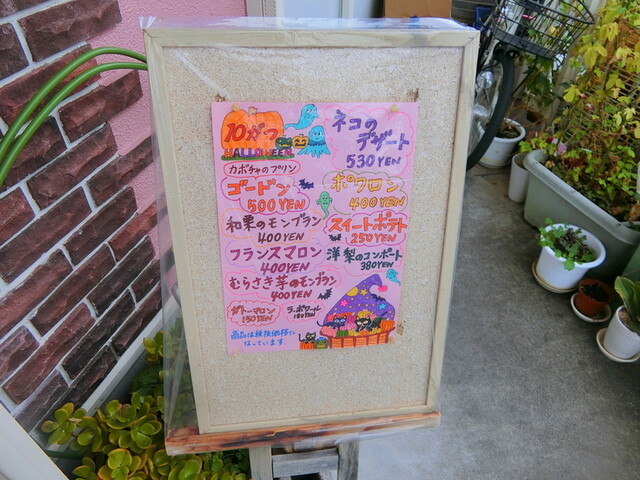 10がつ
HALLOWEEN
ネコの
デザート
530YEN
カボチャのプリン
ゴードン
500YEN
ポワロン
400YEN
和栗のモンブラン
400YEN
スイートポテト
250YEN
フランスマロン
400YEN
洋梨のコンポート
380YEN
むらさき芋のモンブラン
400YEN
ガトーマロン
150YEN
ラ・ポワール
180YEN
商品は税抜価格と
なっています